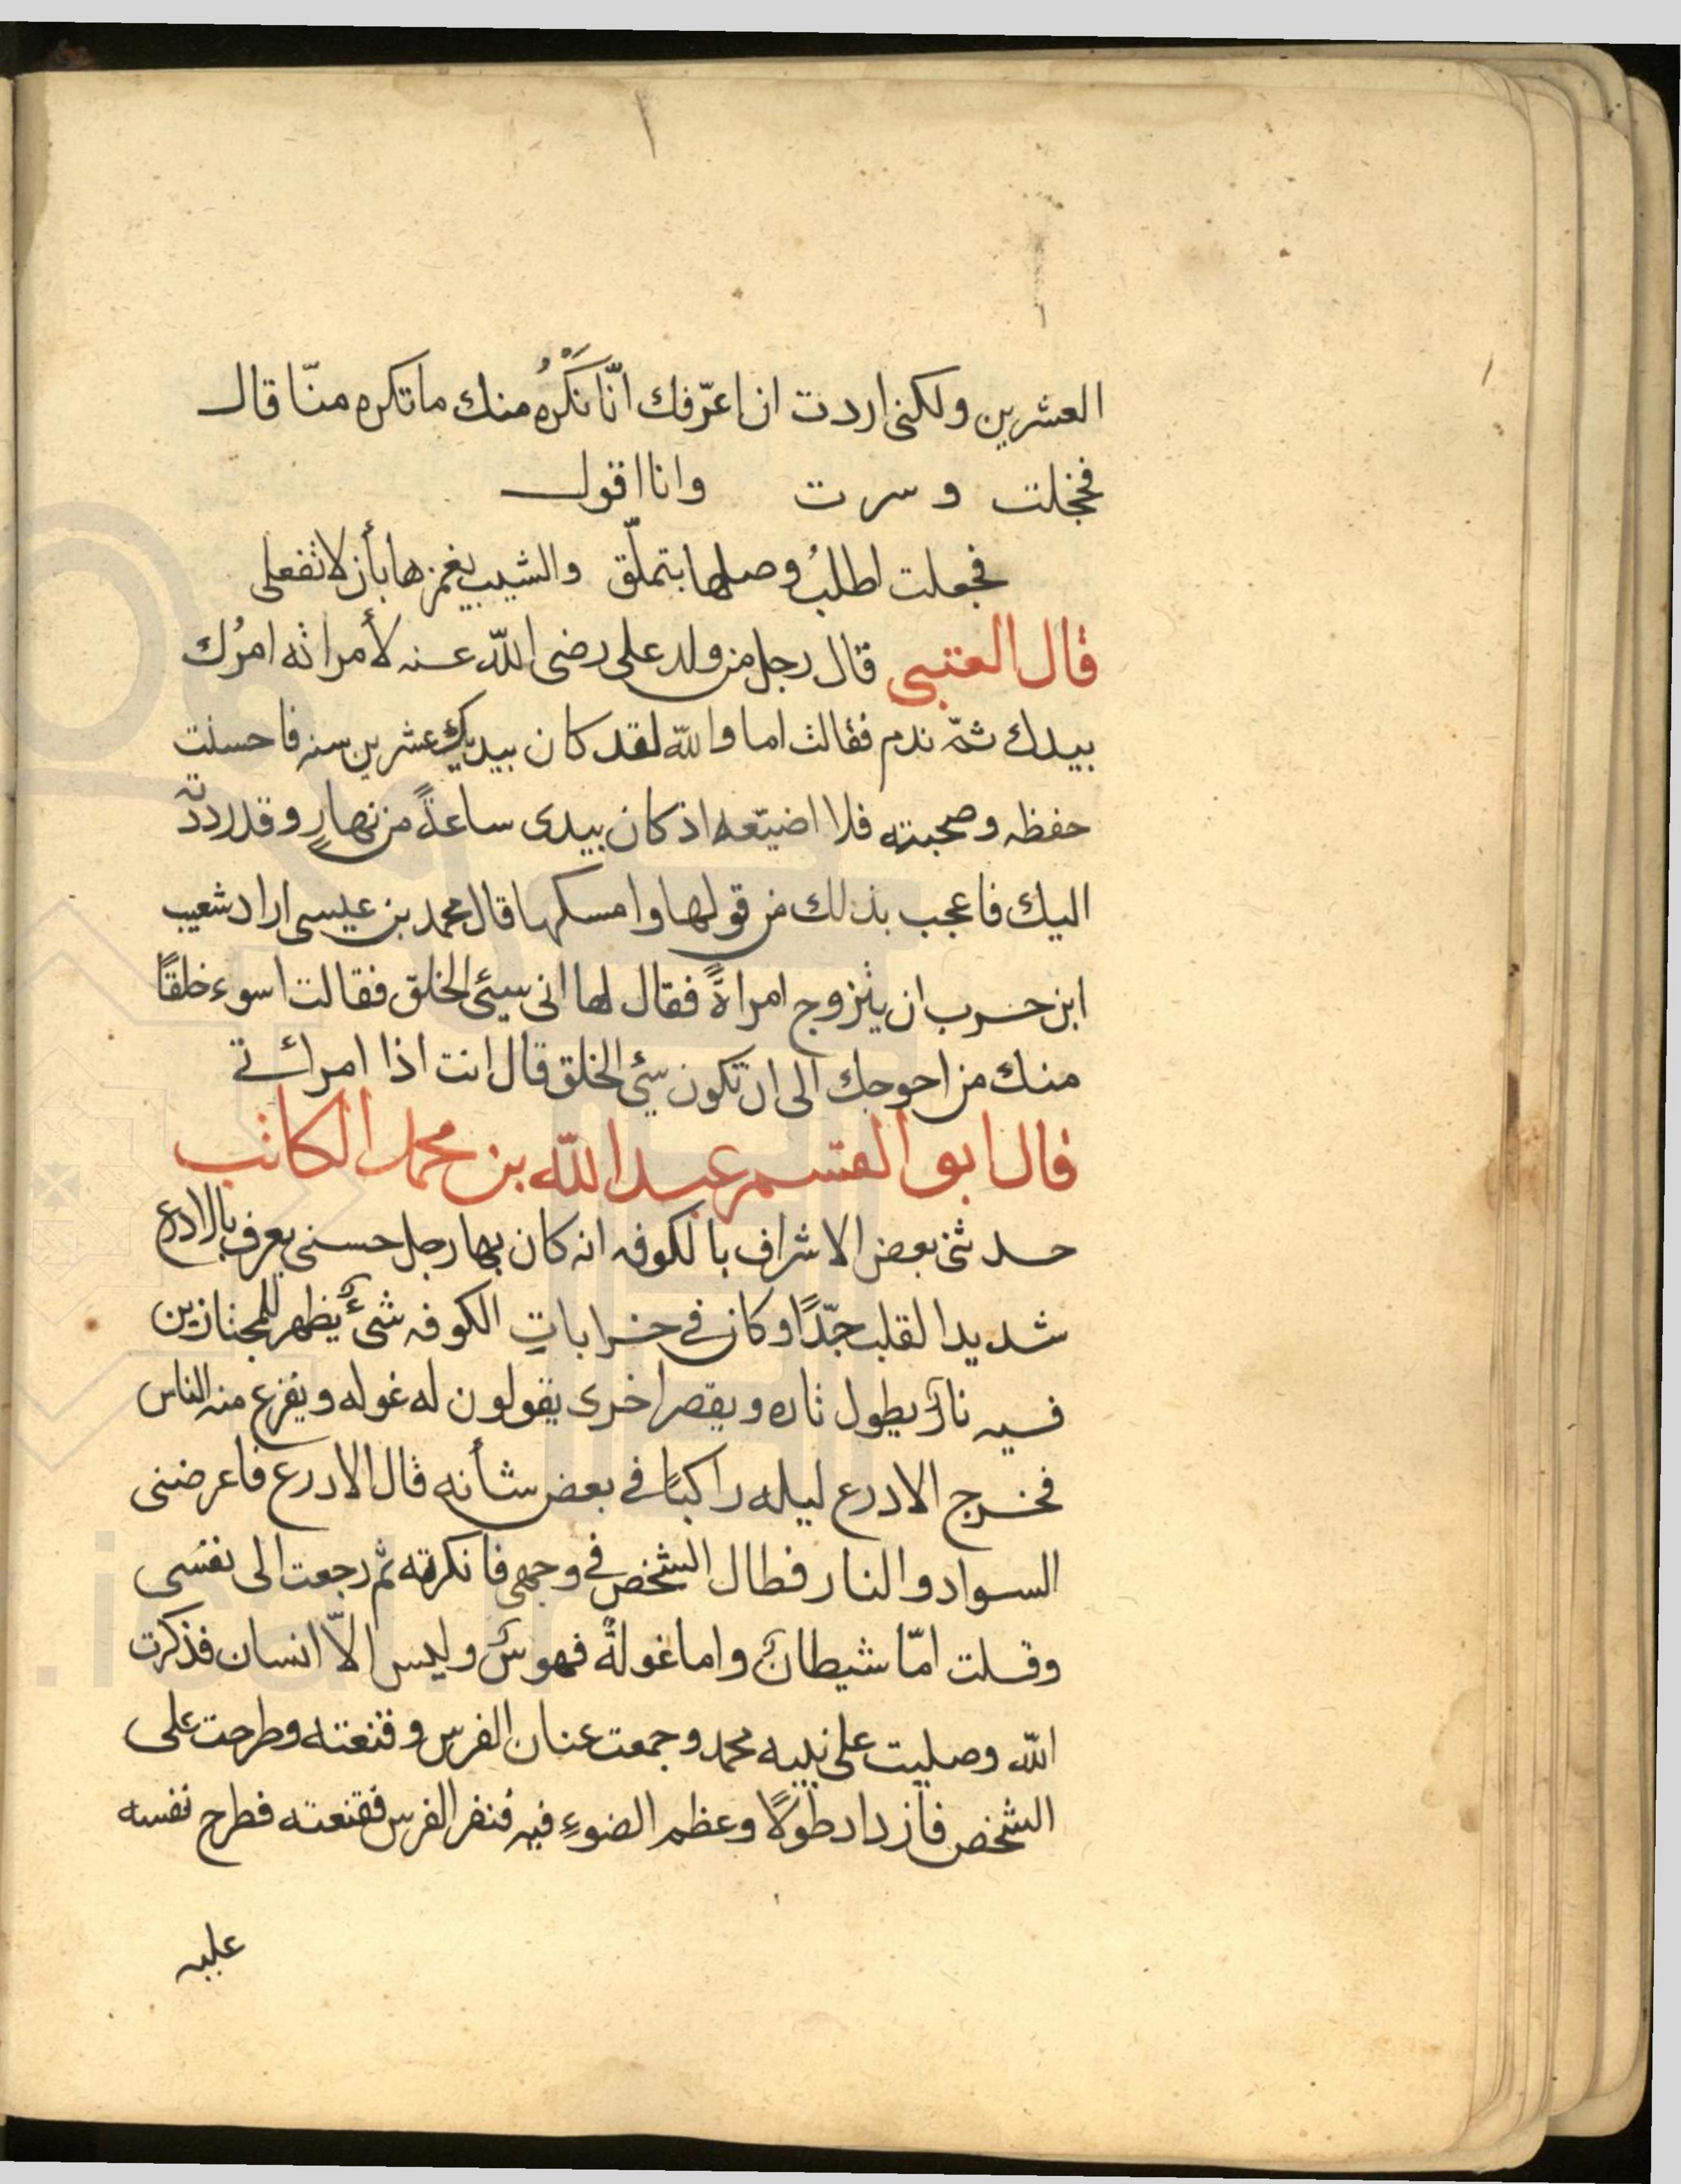 العشرين ولكنى اردت ان اعرّفك انّا نَكْرَهُ منك ما تكره منّا قال
فخجلت وسرت وانا اقول
فجعلت اطلبُ وصلها بتملّق والشيب يغمزها بأن لا تفعلى
قال العتبى قال رجل من ولد على رضى اللّه عنه لأمراته امرُك
بيدك ثمّ ندم فقالت اما واللّه لقد كان بيديك عشرين سنه فاحسنت
حفظه وصحبته فلا اضيّعه اذ كان بيدى ساعةً من نهارٍ وقد رددتّه
اليك فاعجب بذلك من قولها وامسكها قال محمد بن عيسى اراد شعيب
ابن حرب ان يتزوج امراةً فقال لها انى سيئى الخلق فقالت اسوء خلقًا
منك من احوجك الى ان تكون سيّئ الخلق قال انت اذا امرائتى
قال ابو القسم عبد اللّه بن محمد الكاتب
حدثنى بعض الاشراف بالكوفه انه كان بها رجل حسنى يعرف بالادرع
شديد القلب جّدًا وكان فى خراباتِ الكوفه شىءٌ يظهر للمجتازين
فيه نارٌ يطول تاره ويقصر اخرى يقولون له غوله ويفزع منه الناس
فخرج الادرع ليله راكبًا فى بعض شأنه قال الادرع فاعرضنى
السواد والنار فطال الشخص فى وجهى فانكرته ثم رجعت الى نفسى
وقلت امّا شيطانٌ واما غولةٌ فهوسٌ وليس الاّ انسان فذكرت
اللّه وصليت على نبيه محمد وجمعت عنان الفرس وقنعته وطرحت على
الشخص فازداد طولًا وعظم الضوءِ فيه فنفر الفرس فقنعته فطرح نفسه
عليه